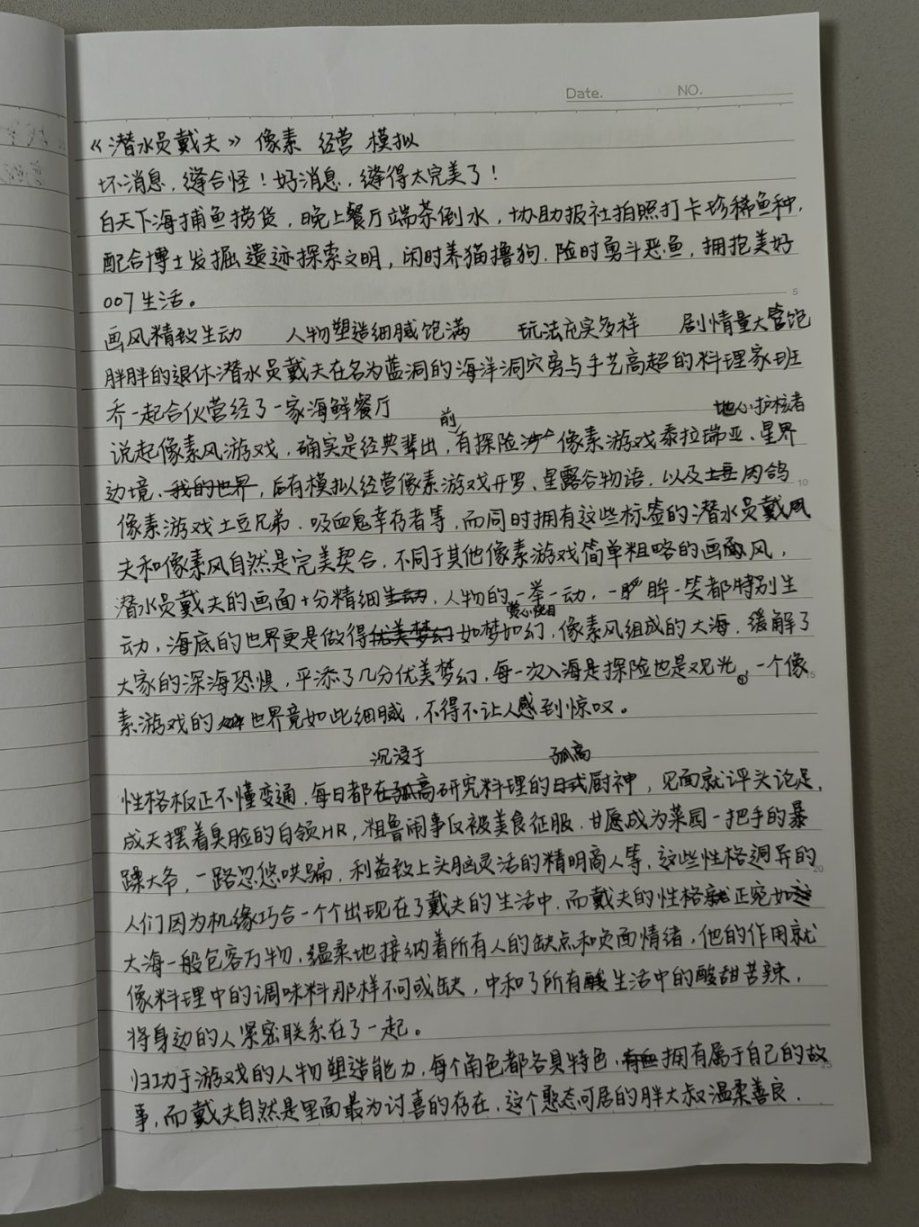 Date.    NO.
《潜水员戴夫》 像素 经营 模拟
坏消息，缝合怪！好消息，缝得太完美了！
白天下海捕鱼捞货，晚上餐厅端茶倒水，协助报社拍照打卡珍稀鱼种，
配合博士发掘遗迹探索文明，闲时养猫撸狗，险时勇斗恶鱼，拥抱美好
007生活。
5
画风精致生动  人物塑造细腻饱满  玩法充实多样  剧情量大管饱
胖胖的退休潜水员戴夫在名为蓝洞的海洋洞穴旁与手艺高超的料理家班
乔一起合伙营经了一家海鲜餐厅
前 地心护核者
说起像素风游戏，确实是经典辈出，有探险像素游戏泰拉瑞亚、星界
边境、我的世界，后有模拟经营像素游戏开罗、星露谷物语，以及土豆肉鸽
10
像素游戏土豆兄弟、吸血鬼幸存者等，而同时拥有这些标签的潜水员戴
夫和像素风自然是完美契合，不同于其他像素游戏简单粗略的画风，
潜水员戴夫的画面十分精细生动，人物的一举一动，一眸一笑都特别生
赏心悦目
动，海底的世界更是做得优美梦幻如梦如幻，像素风组成的大海，缓解了
大家的深海恐惧，平添了几分优美梦幻，每一次入海是探险也是观光，一个像
15
素游戏的世界竟如此细腻，不得不让人感到惊叹。
沉浸于 孤高
性格板正不懂变通，每日都在孤高研究料理的日式厨神，见面就评头论足，
成天摆着臭脸的白领HR，粗鲁闹事反被美食征服，甘愿成为菜园一把手的暴
躁大爷，一路忽悠哄骗，利益致上头脑灵活的精明商人等，这些性格迥异的
20
人们因为机缘巧合一个个出现在了戴夫的生活中，而戴夫的性格就正宛如这
大海一般包容万物，温柔地接纳着所有人的缺点和负面情绪，他的作用就
像料理中的调味料那样不可或缺，中和了所有酸生活中的酸甜苦辣，
将身边的人紧密联系在了一起。
归功于游戏的人物塑造能力，每个角色都各具特色，有血拥有属于自己的故
25
事，而戴夫自然是里面最为讨喜的存在，这个憨态可居的胖大叔温柔善良，